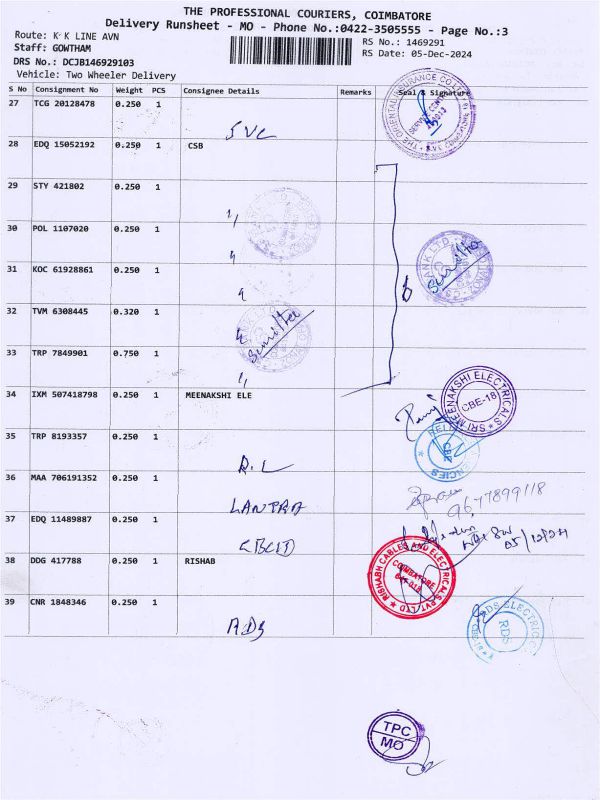 THE PROFESSIONAL COURIERS, COIMBATORE
Delivery Runsheet - MO - Phone No.:0422-3505555 - Page No.:3
Route: K K LINE AVN
RS No.: 1469291
Staff: GOWTHAM
RS Date: 05-Dec-2024
DRS No.: DCJB146929103
Vehicle: Two Wheeler Delivery
S No Consignment No Weight PCS Consignee Details Remarks Seal & Signature
27 TCG 20128478 0.250 1 SVC
28 EDQ 15052192 0.250 1 CSB
29 STY 421802 0.250 1
30 POL 1107020 0.250 1
31 KOC 61928861 0.250 1
32 TVM 6308445 0.320 1
33 TRP 7849901 0.750 1
34 IXM 507418798 0.250 1 MEENAKSHI ELE
SRI MEENAKSHI ELECTRICALS
CBE-18
35 TRP 8193357 0.250 1 R.L
36 MAA 706191352 0.250 1 LANTRA
9677899118
37 EDQ 11489887 0.250 1
05/12/24
38 DDG 417788 0.250 1 RISHAB
RISHABH CABLES AND ELECTRICALS PVT. LTD
COIMBATORE
641 018
39 CNR 1848346 0.250 1 RDS
RDS ELECTRIC
RDS
TPC
MO